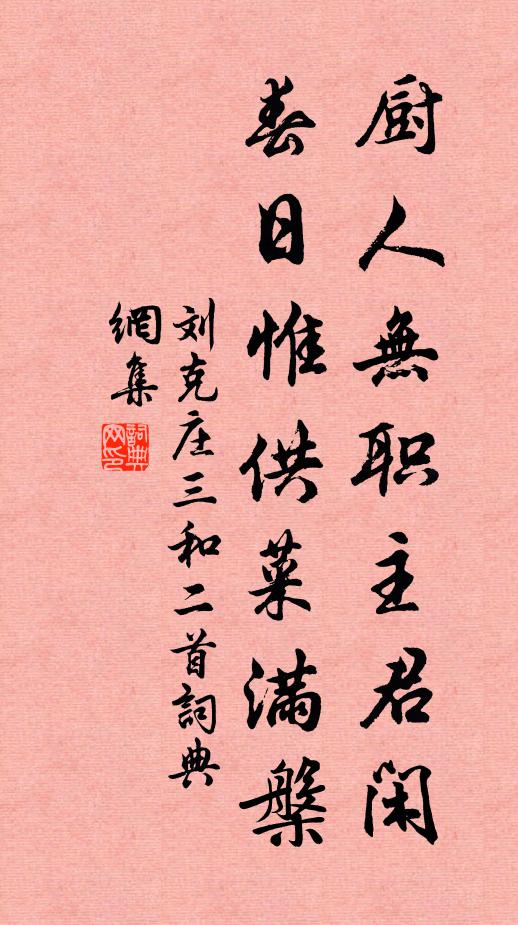 厨人無职主君闲
春日惟供菜满槃
刘克庄三和二首詞典
網集
詞典网印